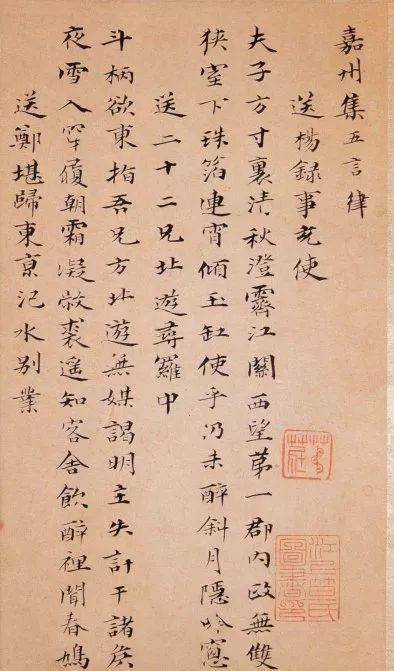 嘉州集五言律
送楊録事充使
夫子方寸裏清秋澄霽江關西望第一郡內政無雙
狹室下珠箔連宵傾玉缸使乎仍未醉斜月隱吟窻
送二十二兄北遊尋羅中
斗柄欲東指吾兄方北遊無媒謁明主失計干諸矦
夜雪入穿履朝霜凝敝裘遥知客舍飲醉裡聞春鳩
送鄭堪歸東京汜水別業
江上笪氏圖書印